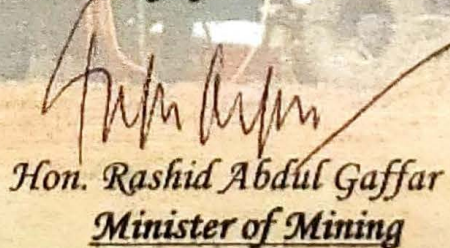 Hon. Rashid Abdul Gaffar
Minister of Mining